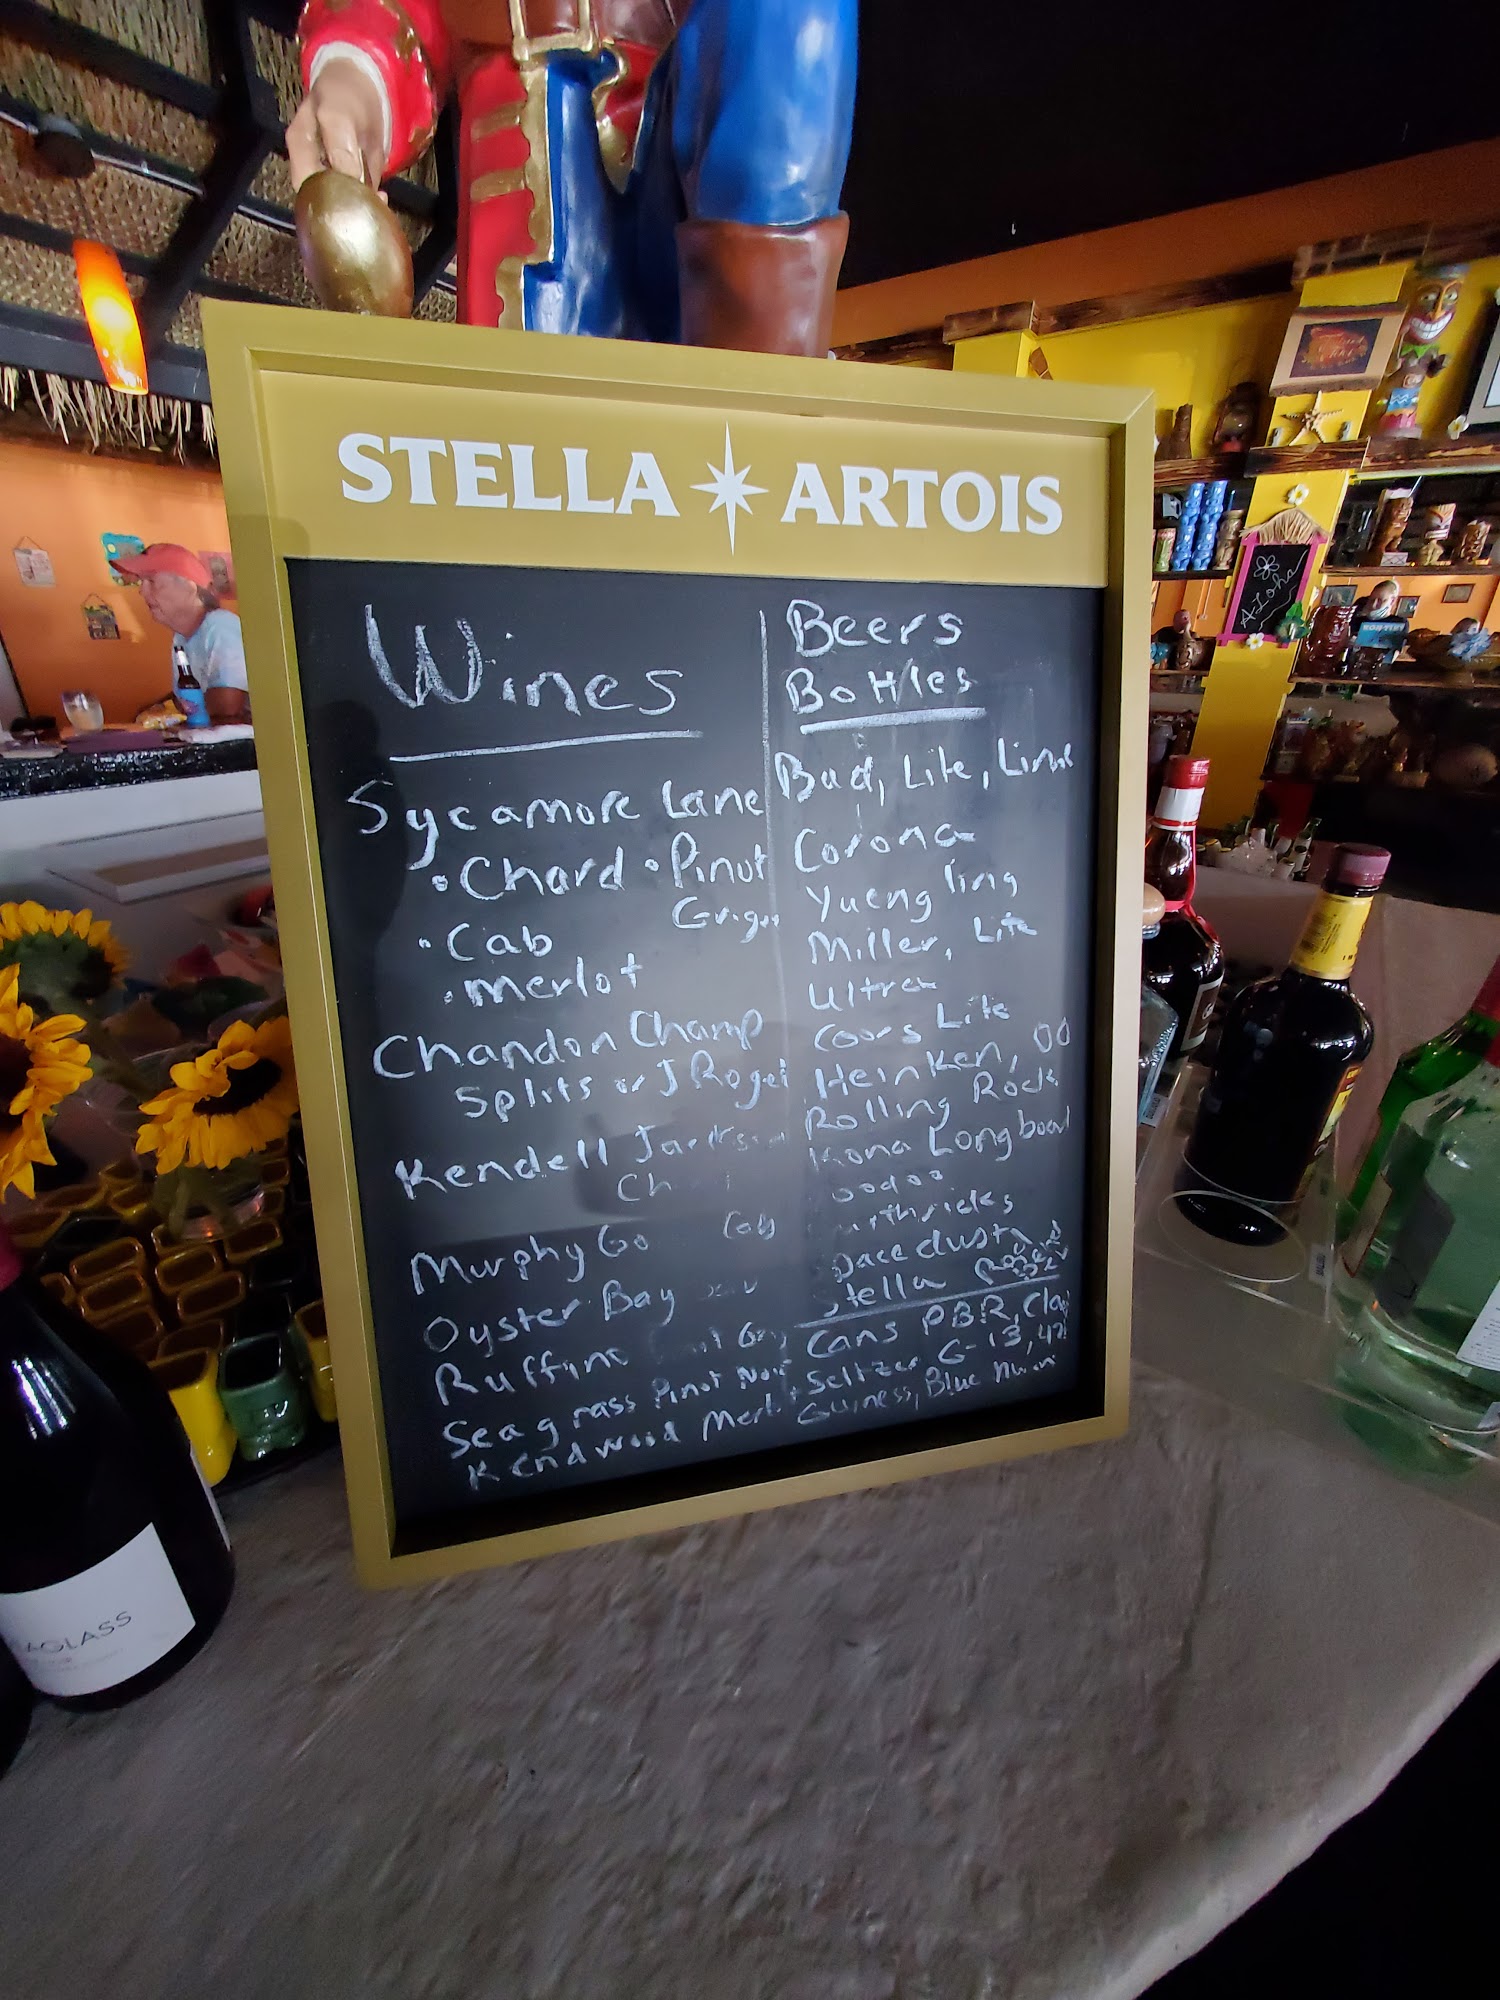 STELLA ARTOIS
Wines
Sycamore Lane
• Chard • Pinot
Grigio
• Cab
• Merlot
Chandon Champ
Splits or J Roget
Kendell Jackson
Murphy Go Cab
Oyster Bay
Ruffino
Seagrass Pinot Noir
Kendwood Merlot
Beers
Bottles
Bud, Lite, Lime
Corona
Yuengling
Miller, Lite
Ultra
Coors Lite
Heinken, 00
Rolling Rock
Kona Longboard
Stella
Cans PBR, Claw
Seltzer G-13,
Guiness, Blue Moon
ALoha